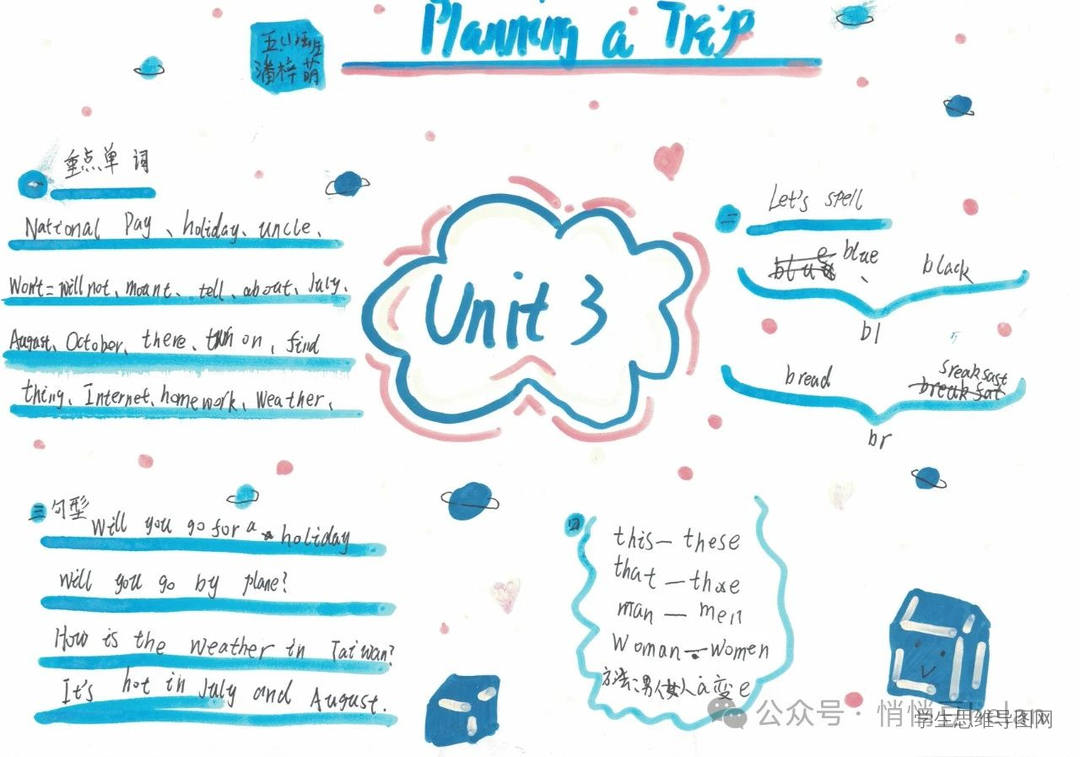 Planning a Trip
五(1)班
潘梓萌
一
重点单词
National Day、holiday、uncle、
Won't=will not、mount、tell、about、July、
August、October、there、turn on、find
thing、Internet、homework、Weather、
Unit 3
二
Let's spell
blue、
black
bl
bread
breaksast
br
三句型
Will you go for a holiday
Will you go by plane?
How is the weather in Taiwan?
It's hot in July and August.
四
this—these
that—those
man—men
Woman—women
方法:男人女人a变e
公众号·悄悄
学生思维导图网